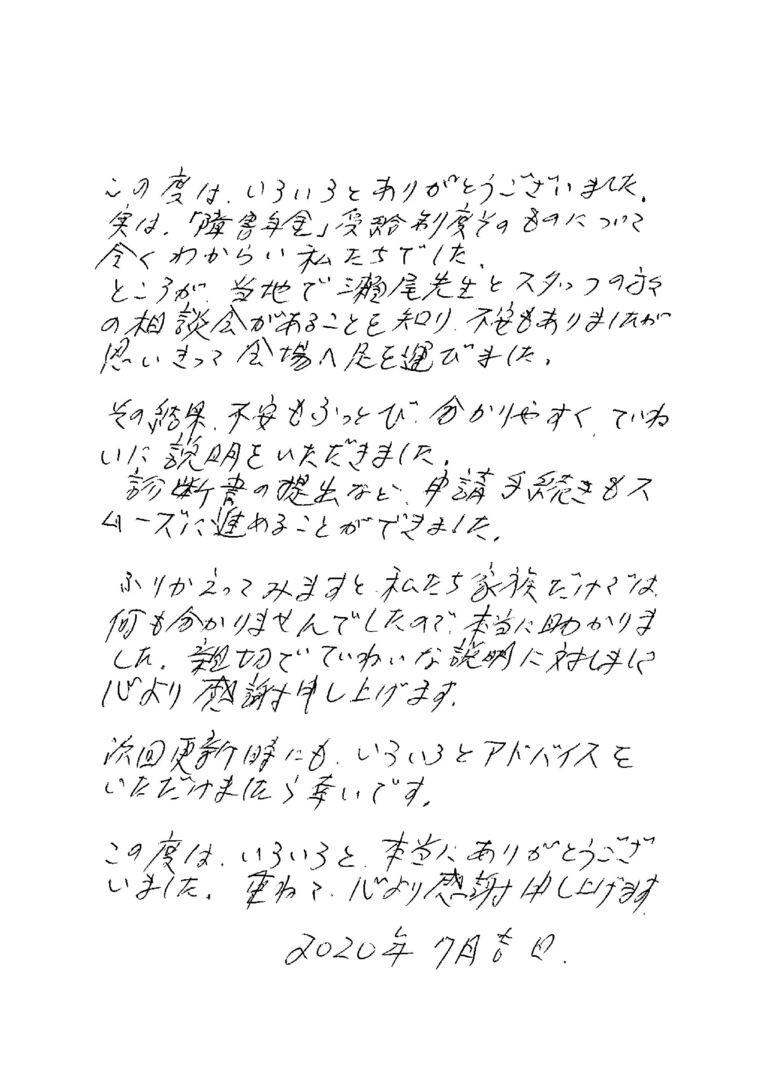 この度は、いろいろとありがとうございました。
実は、「障害年金」受給制度そのものについて
全くわからい私たちでした。
ところが、当地で瀬尾先生とスタッフの方々
の相談会があることを知り、不安もありましたが
思いきって会場へ足を運びました。
その結果、不安もふっとび、分かりやすく、ていね
いに説明をいただきました。
診断書の提出など、申請手続きもス
ムーズに進めることができました。
ふりかえってみますと、私たち家族だけでは、
何も分かりませんでしたので、本当に助かりま
した。親切でていねいな説明に対しまして
心より感謝申し上げます。
次回更新時にも、いろいろとアドバイスを
いただけましたら幸いです。
この度は、いろいろと、本当にありがとうござ
いました。重ねて、心より感謝申し上げます
2020年 7月吉日.